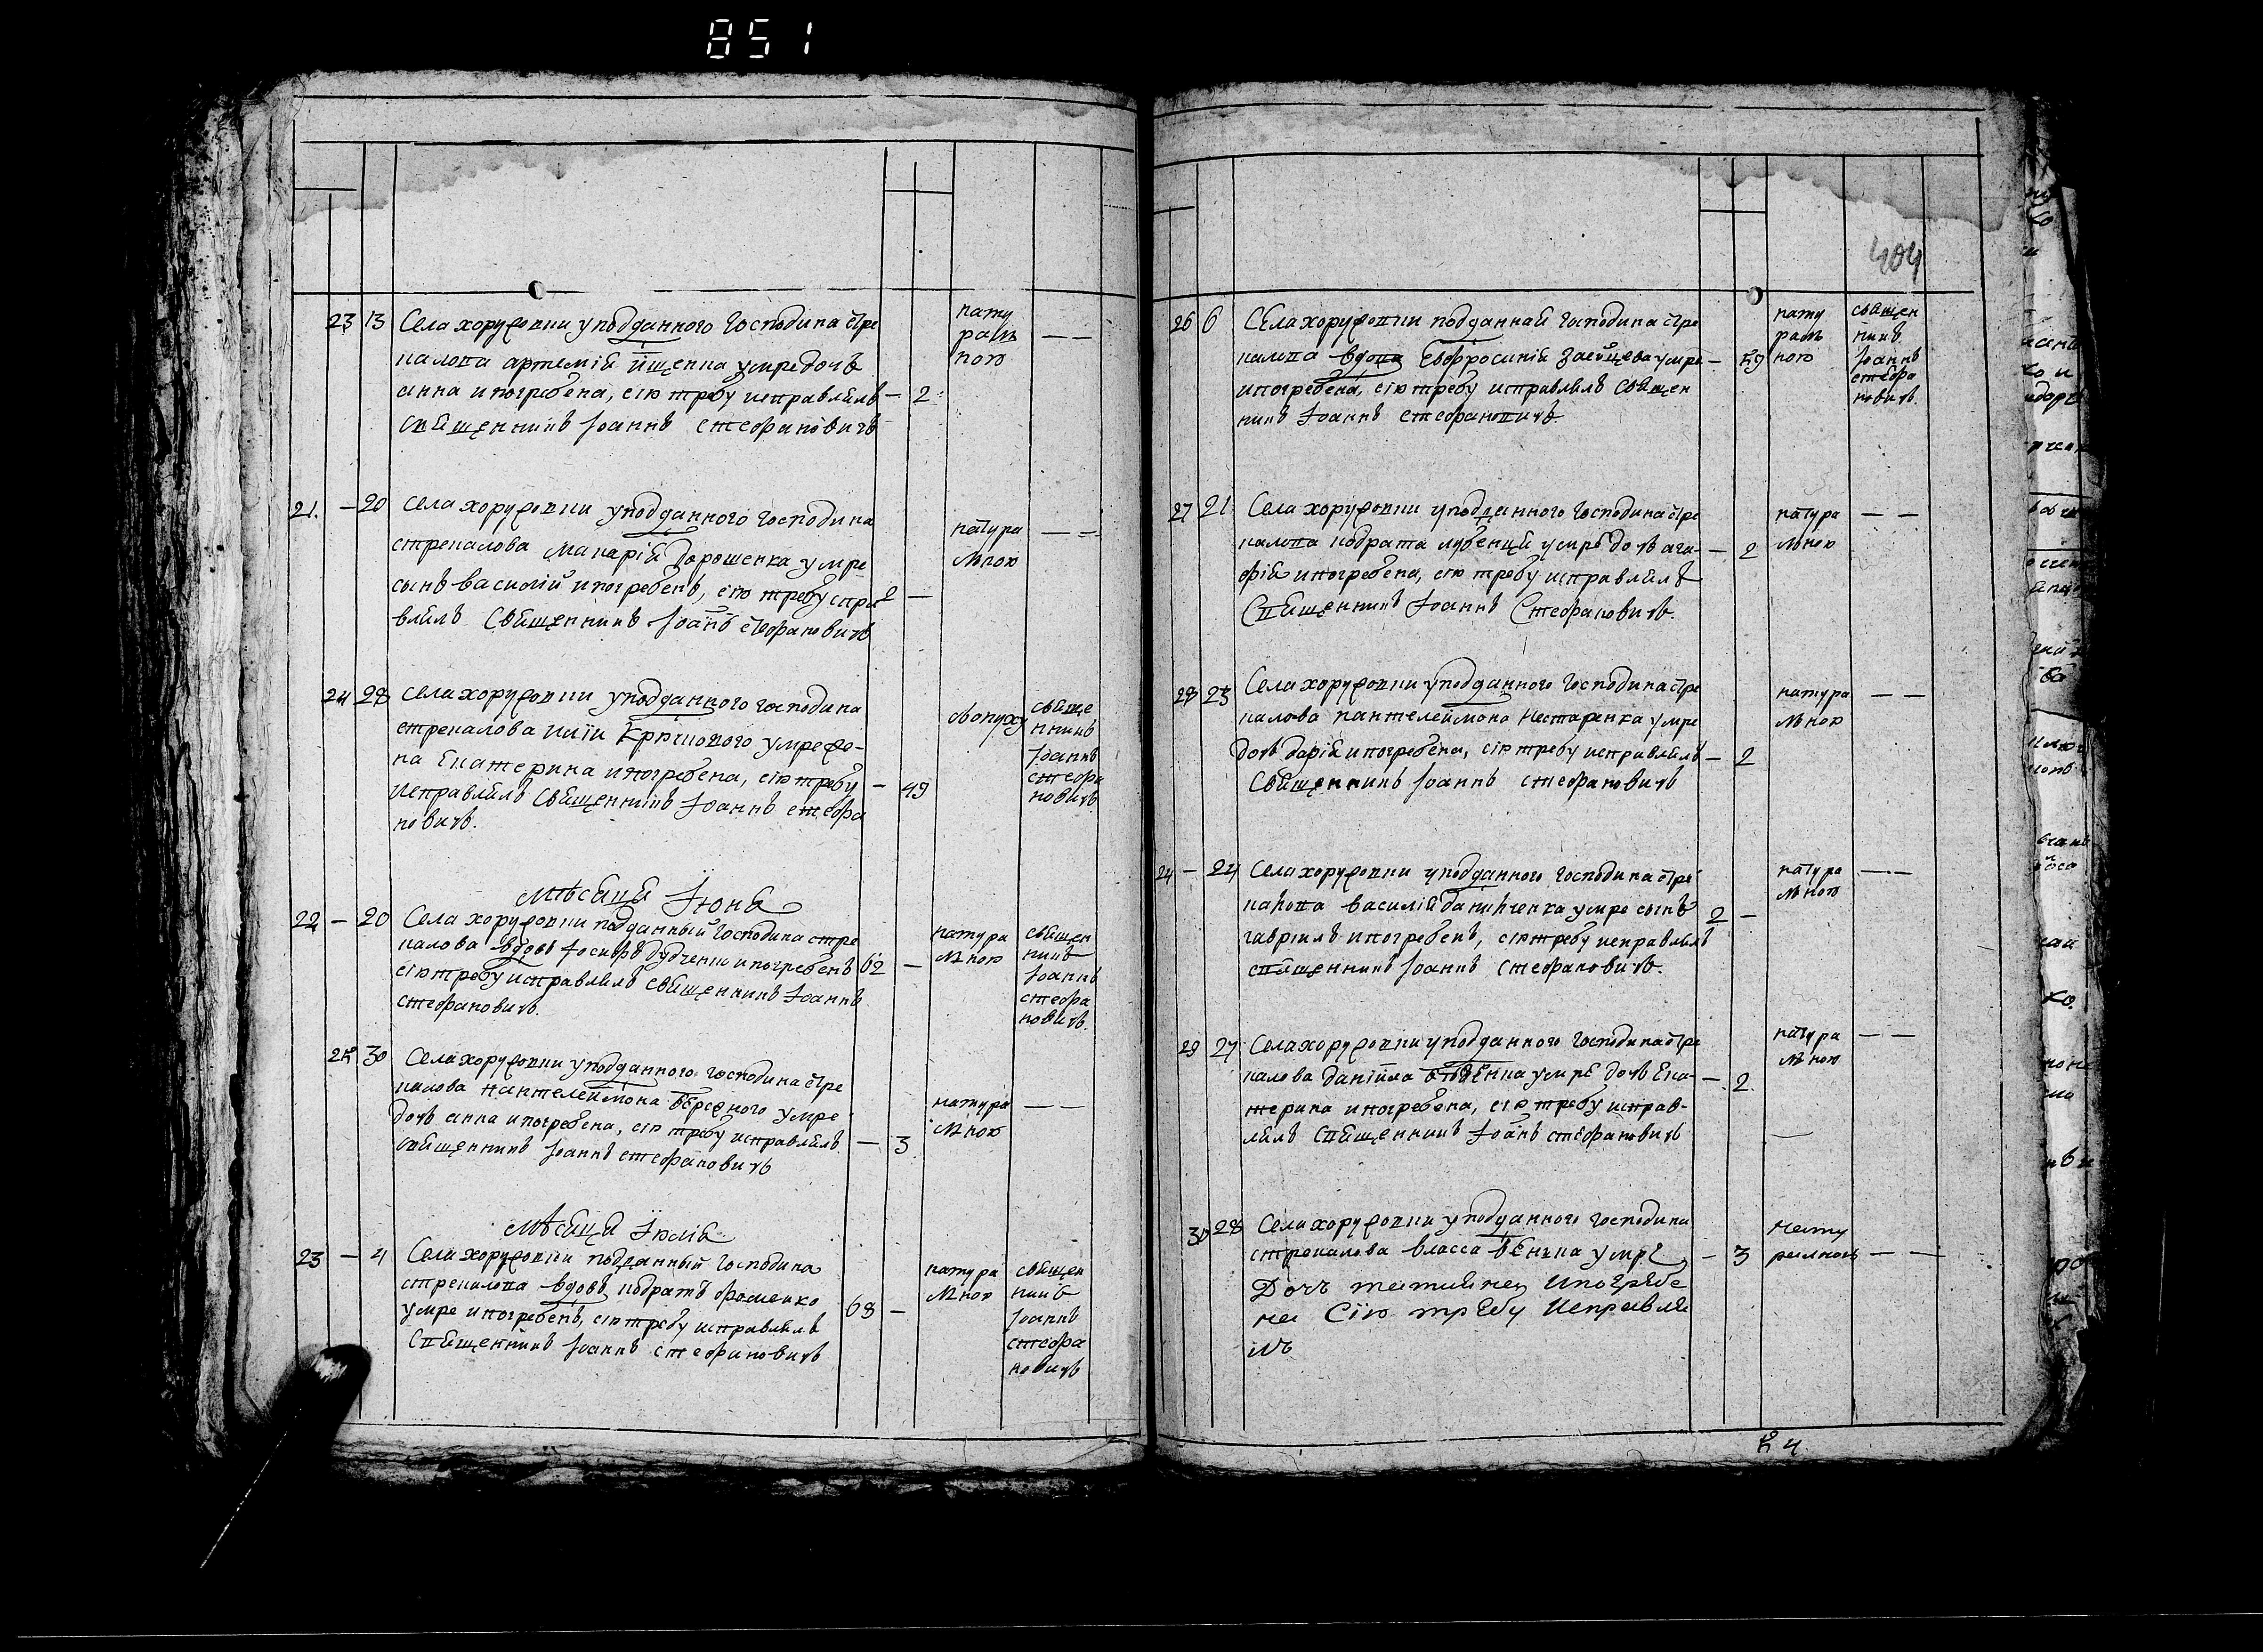 851
404
23 13 Села хоружовки уподданного господина стре
калова артемїя
умре дочь
анна и погребена, сїю требу исправлялъ — 2
священникъ Іоаннъ Стефановичъ
нату
раль
ною — —
21. — 20 села хоружовки уподданного господина
стрекалова Макарїя Дорошенка умре
сынъ василїй и погребенъ, сїю требу спра 2 —
влялъ священникъ Іоаннъ стефановичъ
натура
льною — —
24 28 села хоружовки уподданного господина
стрекалова умре же-
на Екатерина и погребена, сїю требу — 49
исправлялъ священникъ Іоаннъ стефа
новичъ.
свяще
нникъ
Іоаннъ
стефа
новичъ
Мѣсяца Іюня
22 — 20 Села хоружовки подданный господина стре
калова вдовъ Іосифъ и погребенъ 62 —
сїю требу исправлялъ священникъ Іоаннъ
стефановичъ.
натура
льною
священ
никъ
Іоаннъ
стефа
новичъ.
25 30 Села хоружовки уподданного господина стре
калова пантелеймона умре
дочь анна и погребена, сїю требу исправлялъ — 3
священникъ Іоаннъ стефановичъ
натура
льною — —
Мѣсяца Іюлїя
23 — 4 Села хоружовки подданный господина
стрекалова вдовъ кодратъ фоменко
умре и погребенъ, сїю требу исправлялъ 68 —
священникъ Іоаннъ стефановичъ
натура
льною
священ
никъ
Іоаннъ
стефа
новичъ
26 6 Села хоружовки подданная господина стре
калова вдова Евфросинїя умре —
и погребена, сїю требу исправлялъ священ
никъ Іоаннъ стефановичъ.
нату
раль
ною
священ
никъ
Іоаннъ
стефа
новичъ
27 21 Села хоружовки уподданного господина стре
калова кодрата умре дочь ага- — 2
фїя и погребена, сїю требу исправлялъ
Священникъ Іоаннъ Стефановичъ.
натура
льною — —
28 23 Села хоружовки уподданного господина стре
калова пантелеймона Нестаренка умре
дочь дарїя и погребена, сїю требу исправлялъ — 2
Священникъ Іоаннъ стефановичъ
натура
льною — —
24 — 24 Села хоружовки уподданного господина стре
калова василїя умре сынъ 2 —
гаврїилъ и погребенъ, сїю требу исправлялъ
священникъ Іоаннъ стефановичъ.
натура
льною — —
29 27 Села хоружовки уподданного господина стре
калова данїила умре дочь Ека- — 2.
терина и погребена, сїю требу исправ-
лялъ священникъ Іоанъ стефановичъ
натура
льною — —
30 28 Села хоружовки уподданного господина
стрекалова власса умре — 3
Дочь татияна и погребе
на Сїю требу исправля
лъ
нату
ральною — —